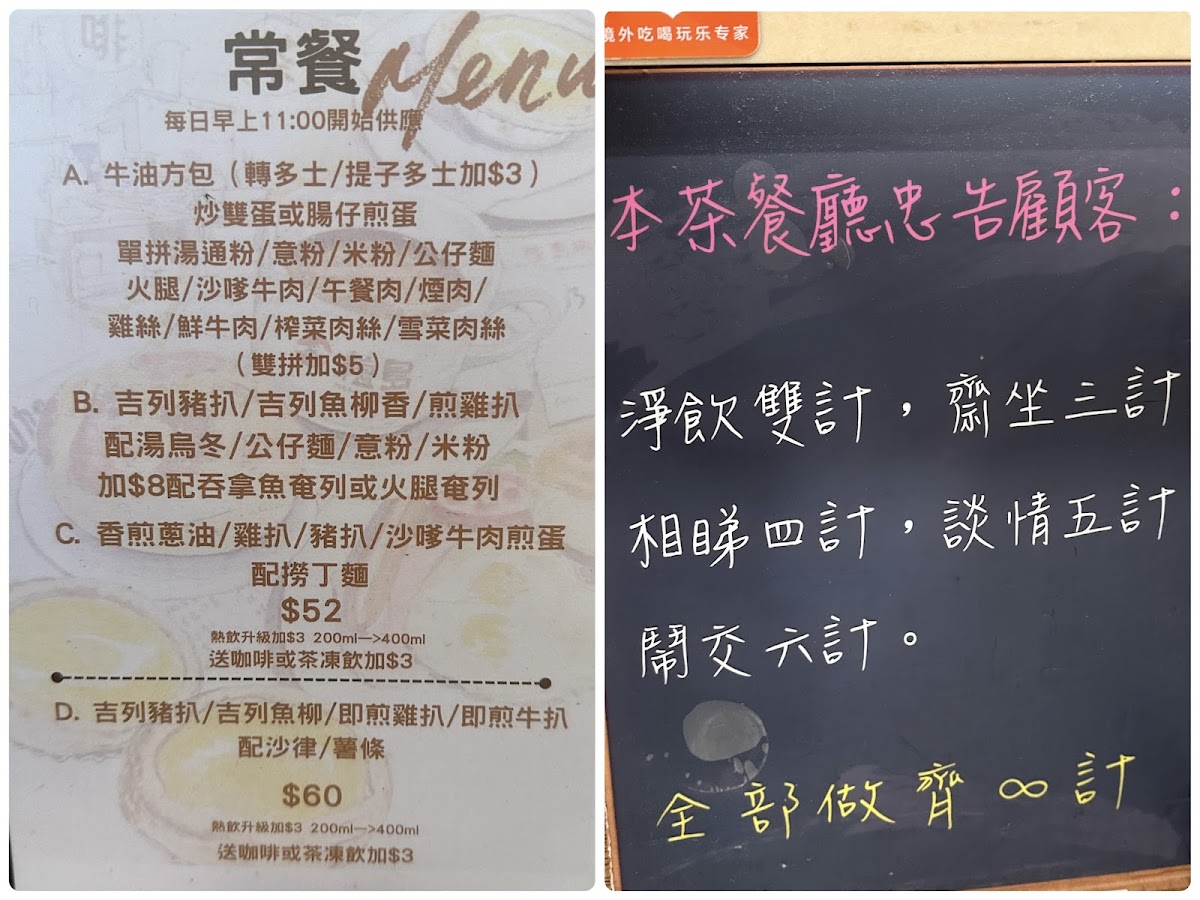 常餐 Menu
每日早上11:00開始供應
A. 牛油方包（轉多士/提子多士加$3）
炒雙蛋或腸仔煎蛋
單拼湯通粉/意粉/米粉/公仔麵
火腿/沙嗲牛肉/午餐肉/煙肉/
雞絲/鮮牛肉/榨菜肉絲/雪菜肉絲
（雙拼加$5）
B. 吉列豬扒/吉列魚柳香/煎雞扒
配湯烏冬/公仔麵/意粉/米粉
加$8配吞拿魚奄列或火腿奄列
C. 香煎蔥油/雞扒/豬扒/沙嗲牛肉煎蛋
配撈丁麵
$52
熱飲升級加$3 200ml—>400ml
送咖啡或茶凍飲加$3
D. 吉列豬扒/吉列魚柳/即煎雞扒/即煎牛扒
配沙律/薯條
$60
熱飲升級加$3 200ml—>400ml
送咖啡或茶凍飲加$3
境外吃喝玩乐专家
本茶餐廳忠告顧客：
淨飲雙計，齋坐三計
相睇四計，談情五計
鬧交六計。
全部做齊∞計